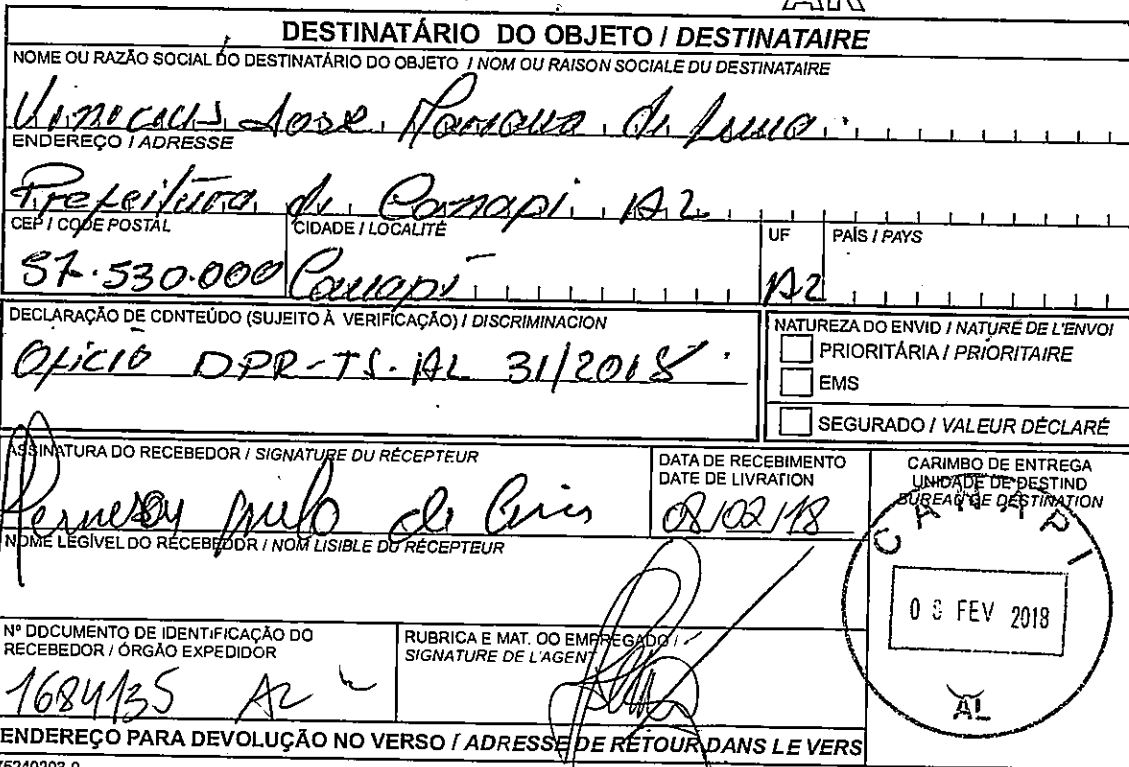 AR
DESTINATÁRIO DO OBJETO / DESTINATAIRE
NOME OU RAZÃO SOCIAL DO DESTINATÁRIO DO OBJETO / NOM OU RAISON SOCIALE DU DESTINATAIRE
Vinicius José Mariano de Lima
ENDEREÇO / ADRESSE
Prefeitura de Canapi AL
CEP / CODE POSTAL CIDADE / LOCALITÉ UF PAÍS / PAYS
57.530.000 Canapi AL
DECLARAÇÃO DE CONTEÚDO (SUJEITO À VERIFICAÇÃO) / DISCRIMINACION
NATUREZA DO ENVIO / NATURE DE L'ENVOI
Ofício DPR-TS.AL 31/2018
PRIORITÁRIA / PRIORITAIRE
EMS
SEGURADO / VALEUR DÉCLARÉ
ASSINATURA DO RECEBEDOR / SIGNATURE DU RÉCEPTEUR
DATA DE RECEBIMENTO
DATE DE LIVRATION
CARIMBO DE ENTREGA
UNIDADE DE DESTINO
BUREAU DE DESTINATION
de 08/02/18
CANAPI
NOME LEGÍVEL DO RECEBEDOR / NOM LISIBLE DU RÉCEPTEUR
FEV 2018
Nº DOCUMENTO DE IDENTIFICAÇÃO DO
RECEBEDOR / ÓRGÃO EXPEDIDOR
RUBRICA E MAT. DO EMPREGADO /
SIGNATURE DE L'AGENT
1684135 AL
AL
ENDEREÇO PARA DEVOLUÇÃO NO VERSO / ADRESSE DE RETOUR DANS LE VERS